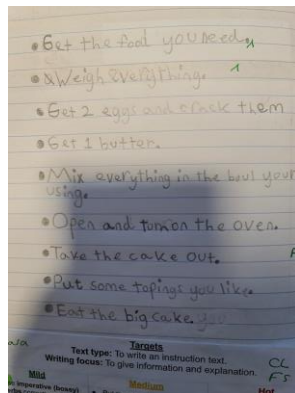 • Get the food you need.
• Weigh everything.
• Get 2 eggs and crack them
• Get 1 butter.
• Mix everything in the boul your
using.
• Open and turn on the oven.
• Take the cake out.
• Put some topings you like.
• Eat the big cake.
Targets
Text type: To write an instruction text.
Writing focus: To give information and explanation.
CL
FS
Mild
Medium
Hot
imperative (bossy)